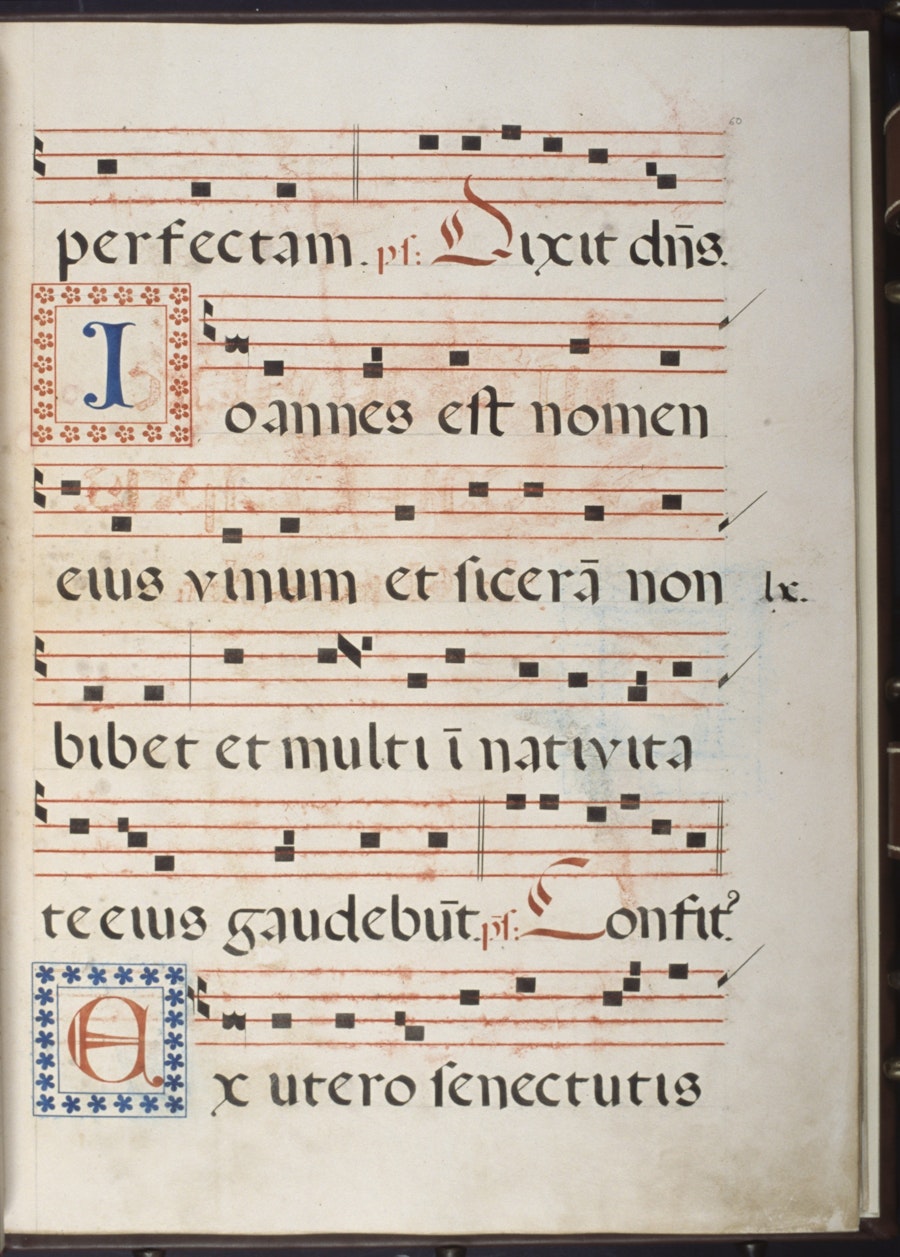 60
perfectam. ps: Dixit dn̄s.
Ioannes est nomen
eius vinum et sicerā non lx.
bibet et multi ī nativita
te eius gaudebūt. ps̄: Confit᾿.
Ex utero senectutis